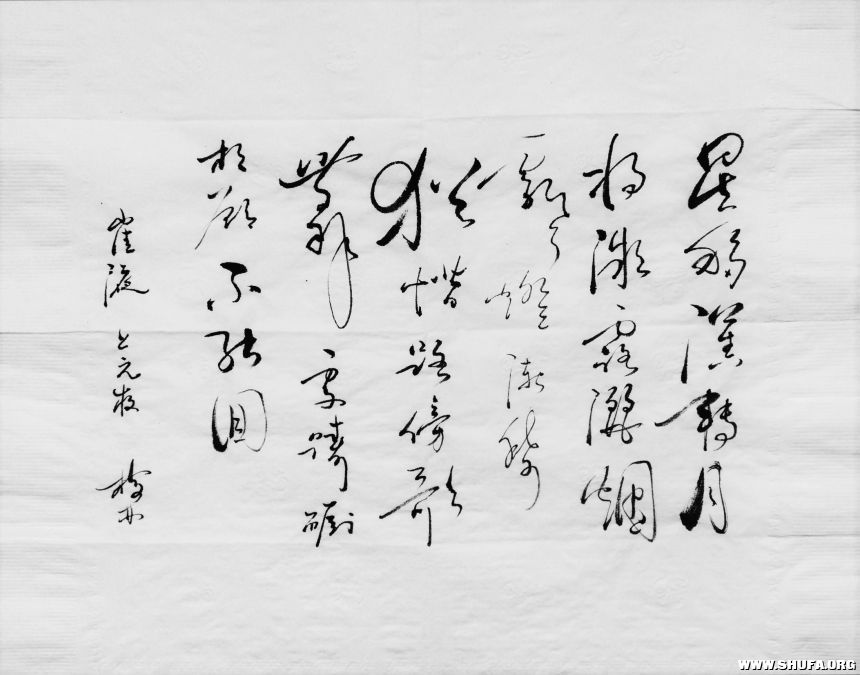 星移漢轉月
將微露灑烟
飄燈漸稀
猶惜路傍歌
舞處踌躇
相顧不能回
崔液上元夜
WWW.SHUFA.ORG